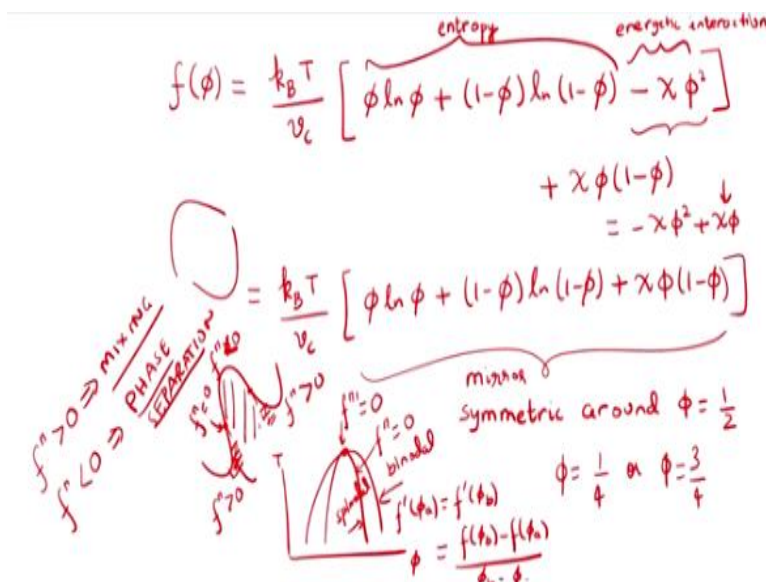 entropy energetic interaction
f(φ) = k_B T / v_c [ φ ln φ + (1-φ) ln (1-φ) - χ φ² ]
+ χ φ(1-φ)
= -χφ² + χφ
= k_B T / v_c [ φ ln φ + (1-φ) ln (1-φ) + χ φ(1-φ) ]
mirror
symmetric around φ = 1/2
φ = 1/4 or φ = 3/4
f'' > 0 ⇒ MIXING
f'' < 0 ⇒ PHASE
SEPARATION
f'' < 0
f'' = 0
f'' = 0
f'' > 0
f'' > 0
f''' = 0
f'' = 0
binodal
spinodal
T
φ
f'(φ_a) = f'(φ_b)
= f(φ_b) - f(φ_a)